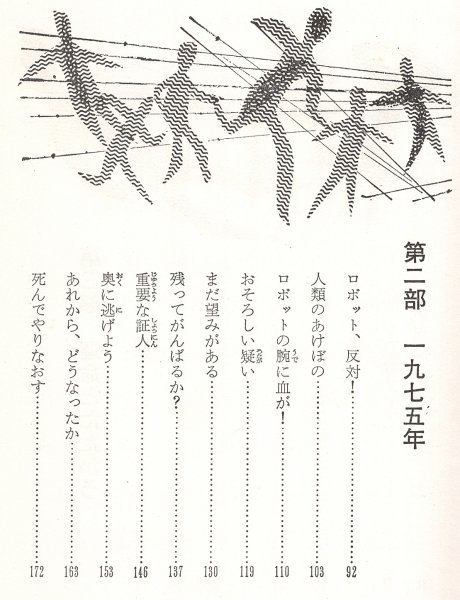 第二部 一九七五年
ロボット、反対！ 92
人類のあけぼの 103
ロボットの腕に血が！ 110
おそろしい疑い 119
まだ望みがある 130
残ってがんばるか？ 137
重要な証人 146
奥に逃げよう 153
あれから、どうなったか 163
死んでやりなおす 172